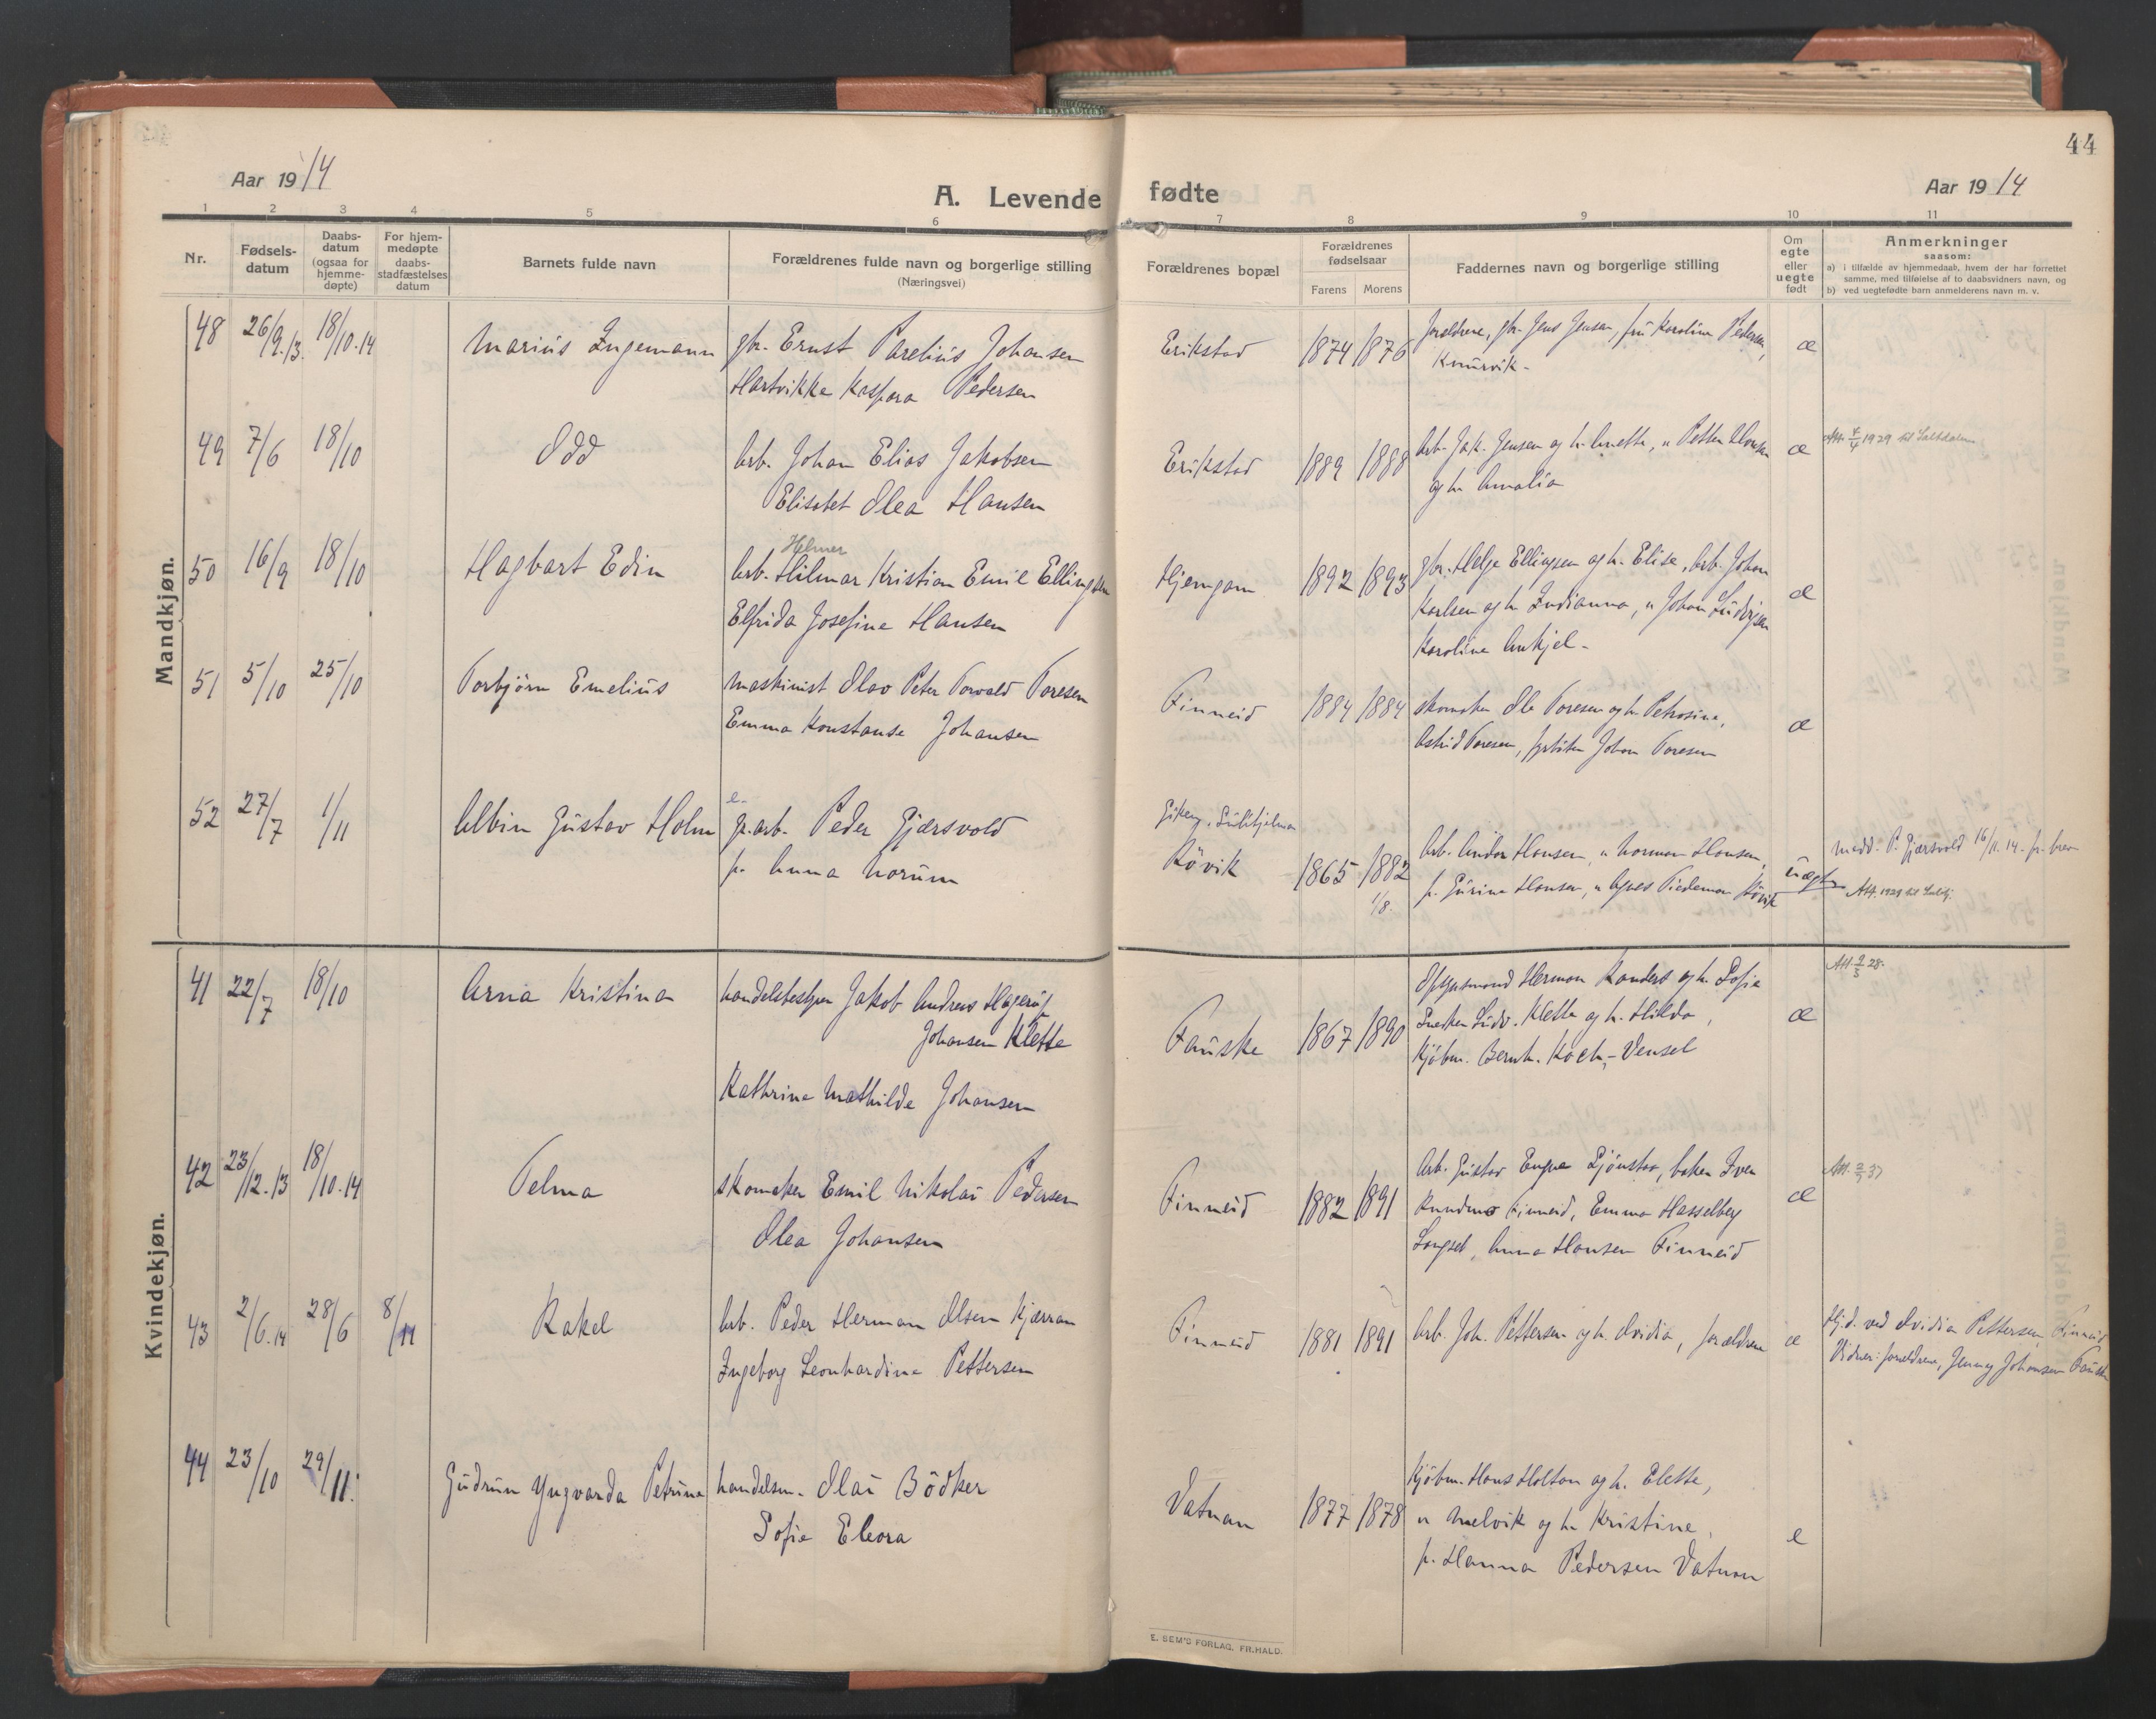 44
Aar 1914
A. Levende fødte
Aar 1914
1 2 3 4 5 6 7 8 9 10 11
Nr.
Fødsels-
datum
Daabs-
datum
(ogsaa for
hjemme-
døpte)
For hjem-
medøpte
daabs-
stadfæstelses
datum
Barnets fulde navn
Forældrenes fulde navn og borgerlige stilling
(Næringsvei)
Forældrenes bopæl
Forældrenes
fødselsaar
Farens Morens
Faddernes navn og borgerlige stilling
Om
egte
eller
uegte
født
Anmerkninger
saasom:
a) i tilfælde av hjemmedaab, hvem der har forrettet
samme, med tilføielse af to daabsvidners navn, og
b) ved uegtefødte barn anmelderens navn m. v.
Mandkjøn.
48 26/9.13. 18/10.14 Marius Ingemann gbr. Ernst Parelius Johansen Erikstad 1874 1876 forældrene, gbr. Jens Jensen, fru Karoline Pedersen, æ
Hartvikke Kaspara Pedersen
49 7/6 18/10 Odd Arb. Johan Elias Jakobsen Erikstad 1889 1888 Arb. Jak. Jensen og h. Anette, " Petter æ Att. 1929 til Saltdalen
Elisabet Olea Hansen og h. Amalia
Helmer
50 16/9 18/10 Hagbart Edin Arb. Hilmar Kristian Emil Ellingsen Hjemgam 1892 1893 gbr. Helge Ellingsen og h. Elise, Arb. Johan æ
Elfrida Josefine Hansen Karlsen og h. Indianna, " Johan Ludvigsen
Karoline
51 5/10 25/10 Torbjörn Emelius maskinist Olav Peter Torvald Toresen Finneid 1884 1884 skomaker Ole Toresen og h. Petrosine, æ
Emma Konstanse Johansen Astrid Toresen, Johan Toresen
52 27/7 1/11 Albin Gustav Holm e. gr.arb. Peder Gjærsvold Rövik 1865 1882 1/8. Arb. Hansen, " Norman Hansen, uægte medd. P. Gjærsvold 16/11.14. pr. brev
p. Anna Norum p. Gurine Hansen, " Agnes Tiedeman Rövik Att. 1929 til
Kvindekjøn.
41 22/7 18/10 Arna Kristina handelsbestyrer Jakob Andreas Hagerup Fauske 1867 1890 Herman Randers og h. Sofie æ
Johansen Klette Snedker Ludv. Klette og h. Hilda,
Kathrine Mathilde Johansen Kjöbm. Bernh. Koch, Vensel
42 23/12.13 18/10.14 Telma skomaker Emil Nikolai Pedersen Finneid 1882 1891 Arb. Gustav Engan Sjönstaa, baker Iver æ
Olea Johansen Rundmo Finneid, Emma Hasselberg
Langset, Anna Hansen Finneid
43 2/6.14 28/6 8/11 Rakel Arb. Peder Herman Olsen Kjærran Finneid 1881 1891 Arb. Joh. Pettersen og h. Ovidia, forældrene æ Hj.d. ved Ovidia Pettersen, Finneid
Ingeborg Leonhardine Pettersen Vidner: forældrene, Jenny Johansen Fauske
44 23/10 29/11. Gudrun Yngvarda Petrine handelsm. Olai Bödker Vatnan 1877 1878 Kjöbm. Hans Holtan og h. Elette, e
Sofie Eleora " Melvik og h. Kristine,
p. Hanna Pedersen Vatnan
E. SEM'S FORLAG, FR.HALD.